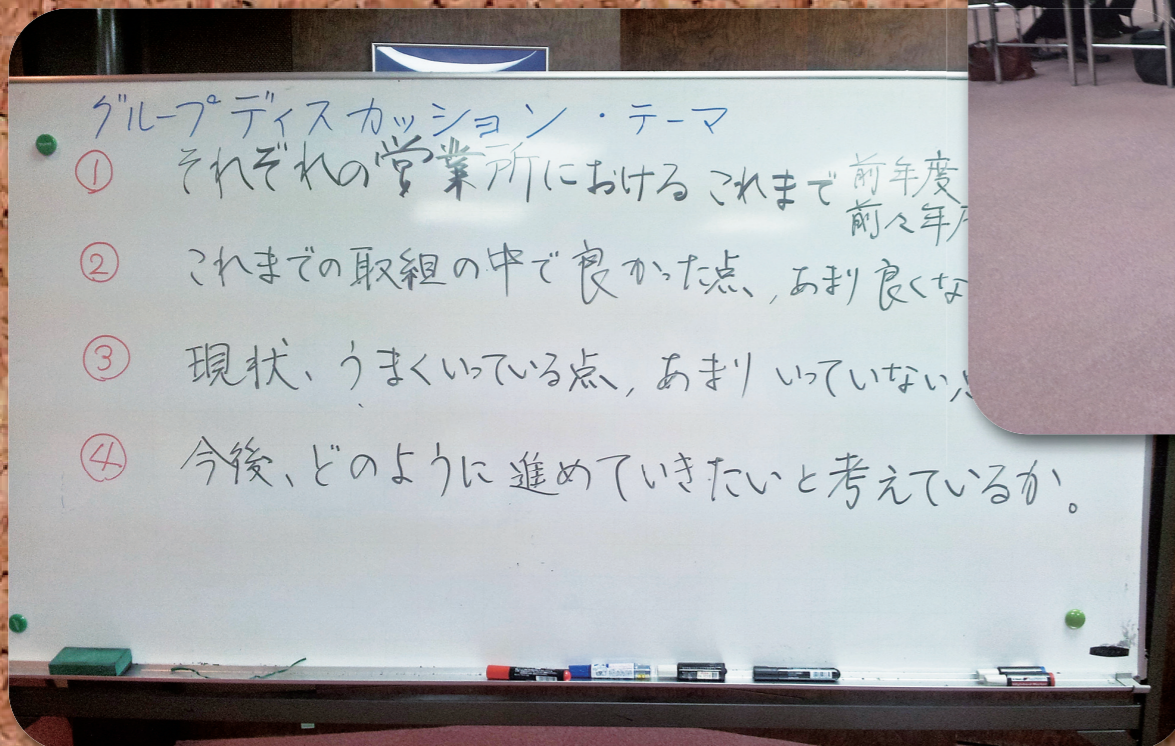 グループディスカッション・テーマ
① それぞれの営業所における これまで 前年度
前々年
② これまでの取組の中で良かった点、あまり良くな
③ 現状、うまくいっている点、あまり いっていない
④ 今後、どのように進めていきたいと考えているか。